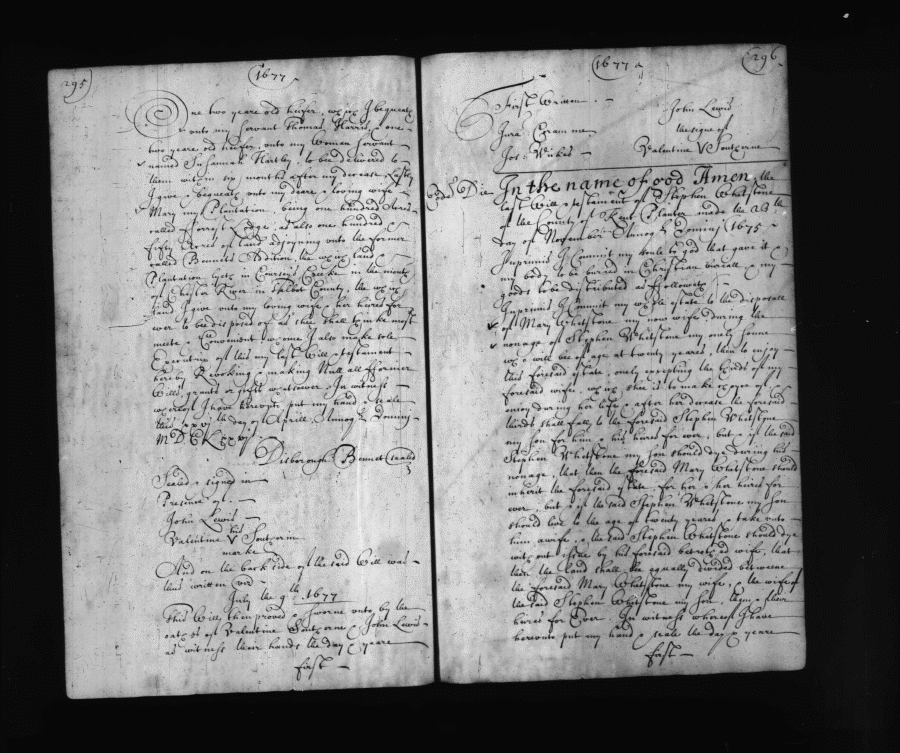 295
1677
One two yeare old heifer, I bequeath
unto my servant Thomas Harris, one
two yeare old heifer, unto my woman servant
named Susannah Hartley, to be delivered to
them within six months after my decease, Lastly
I give & bequeath unto my deare & loving wife
Mary my Plantation, being one hundred Acres
called Forrest Lodge, as also one hundred
fifty Acres of land adjoyning unto the former
called Bennets Addition, the land
Plantation lyeth in Coursys Creeke in the mouth
of Chester River in Talbot County, the
land I give unto my loving wife & her heires for
ever to be disposed of as shee shall thinke most
meete & Convenient, whome I also make sole
Executrix of this my last Will & testament
hereby Revoking & making Null all former
Wills, grants or gifts whatsoever. In witness
whereof I have hereunto put my hand & seale
this day of Aprill, Annoq Dominij
Disborough Bennet sealed
Sealed & signed in
Presence of
John Lewis
his
Valentine V Southerne
marke
And on the back side of the said Will was
this written viz
July the 9th 1677
This Will then proved & sworne unto by the
oathes of Valentine Southerne & John Lewis
as witness their hands the day & yeare
first
1677
296
First Written
John Lewis
Jurat Coram me
the signe of
Jos: Wickes
Valentine V Southerne
Die
In the name of god Amen, the
last Will & testament of Stephen Whitstone
of the County of Kent Planter made the
day of November Annoq Dominj (1675
Inprimis I Commit my soule to god that gave it &
my body to be buried in Christian buriall & my
goods to be distributed as followeth
Inprimis I Commit my whole estate to the disposall
of Mary Whitstone my now wife during the
nonage of Stephen Whitstone my onely sonne
will bee of age at twenty yeares, then to enjoy
this foresaid estate, onely excepting the thirds of my
foresaid wife, shee is to make use of
onely during her life & after her decease the foresaid
thirds shall fall to the foresaid Stephen Whitstone
my son for him & his heires for ever, but & if the said
Stephen Whitstone my son should dye during his
nonage, that then the foresaid Mary Whitstone should
inherit the foresaid estate, for her & her heires for
ever, but & if the said Stephen Whitstone my son
should live to the age of twenty yeares & take unto
him a wife & the said Stephen Whitstone should dye
without issue by his foresaid wife, that
then the land shall be equally divided betweene
the foresaid Mary Whitstone my wife, & the wife of
the said Stephen Whitstone my son, them & their
heires for Ever. In witness whereof I have
hereunto put my hand & seale the day & yeare
first